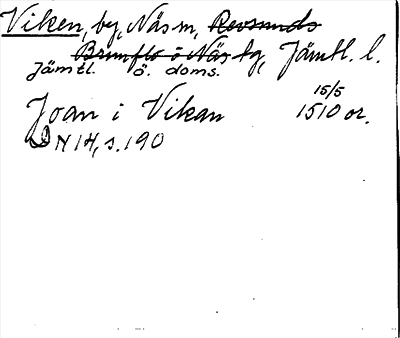 Viken, by, Näs sn, Revsunds
Brunflo o Näs tg, Jämtl. l.
Jämtl. ö. doms.
Joan i Vikan 15/5 1510 or.
DN 14, s. 190